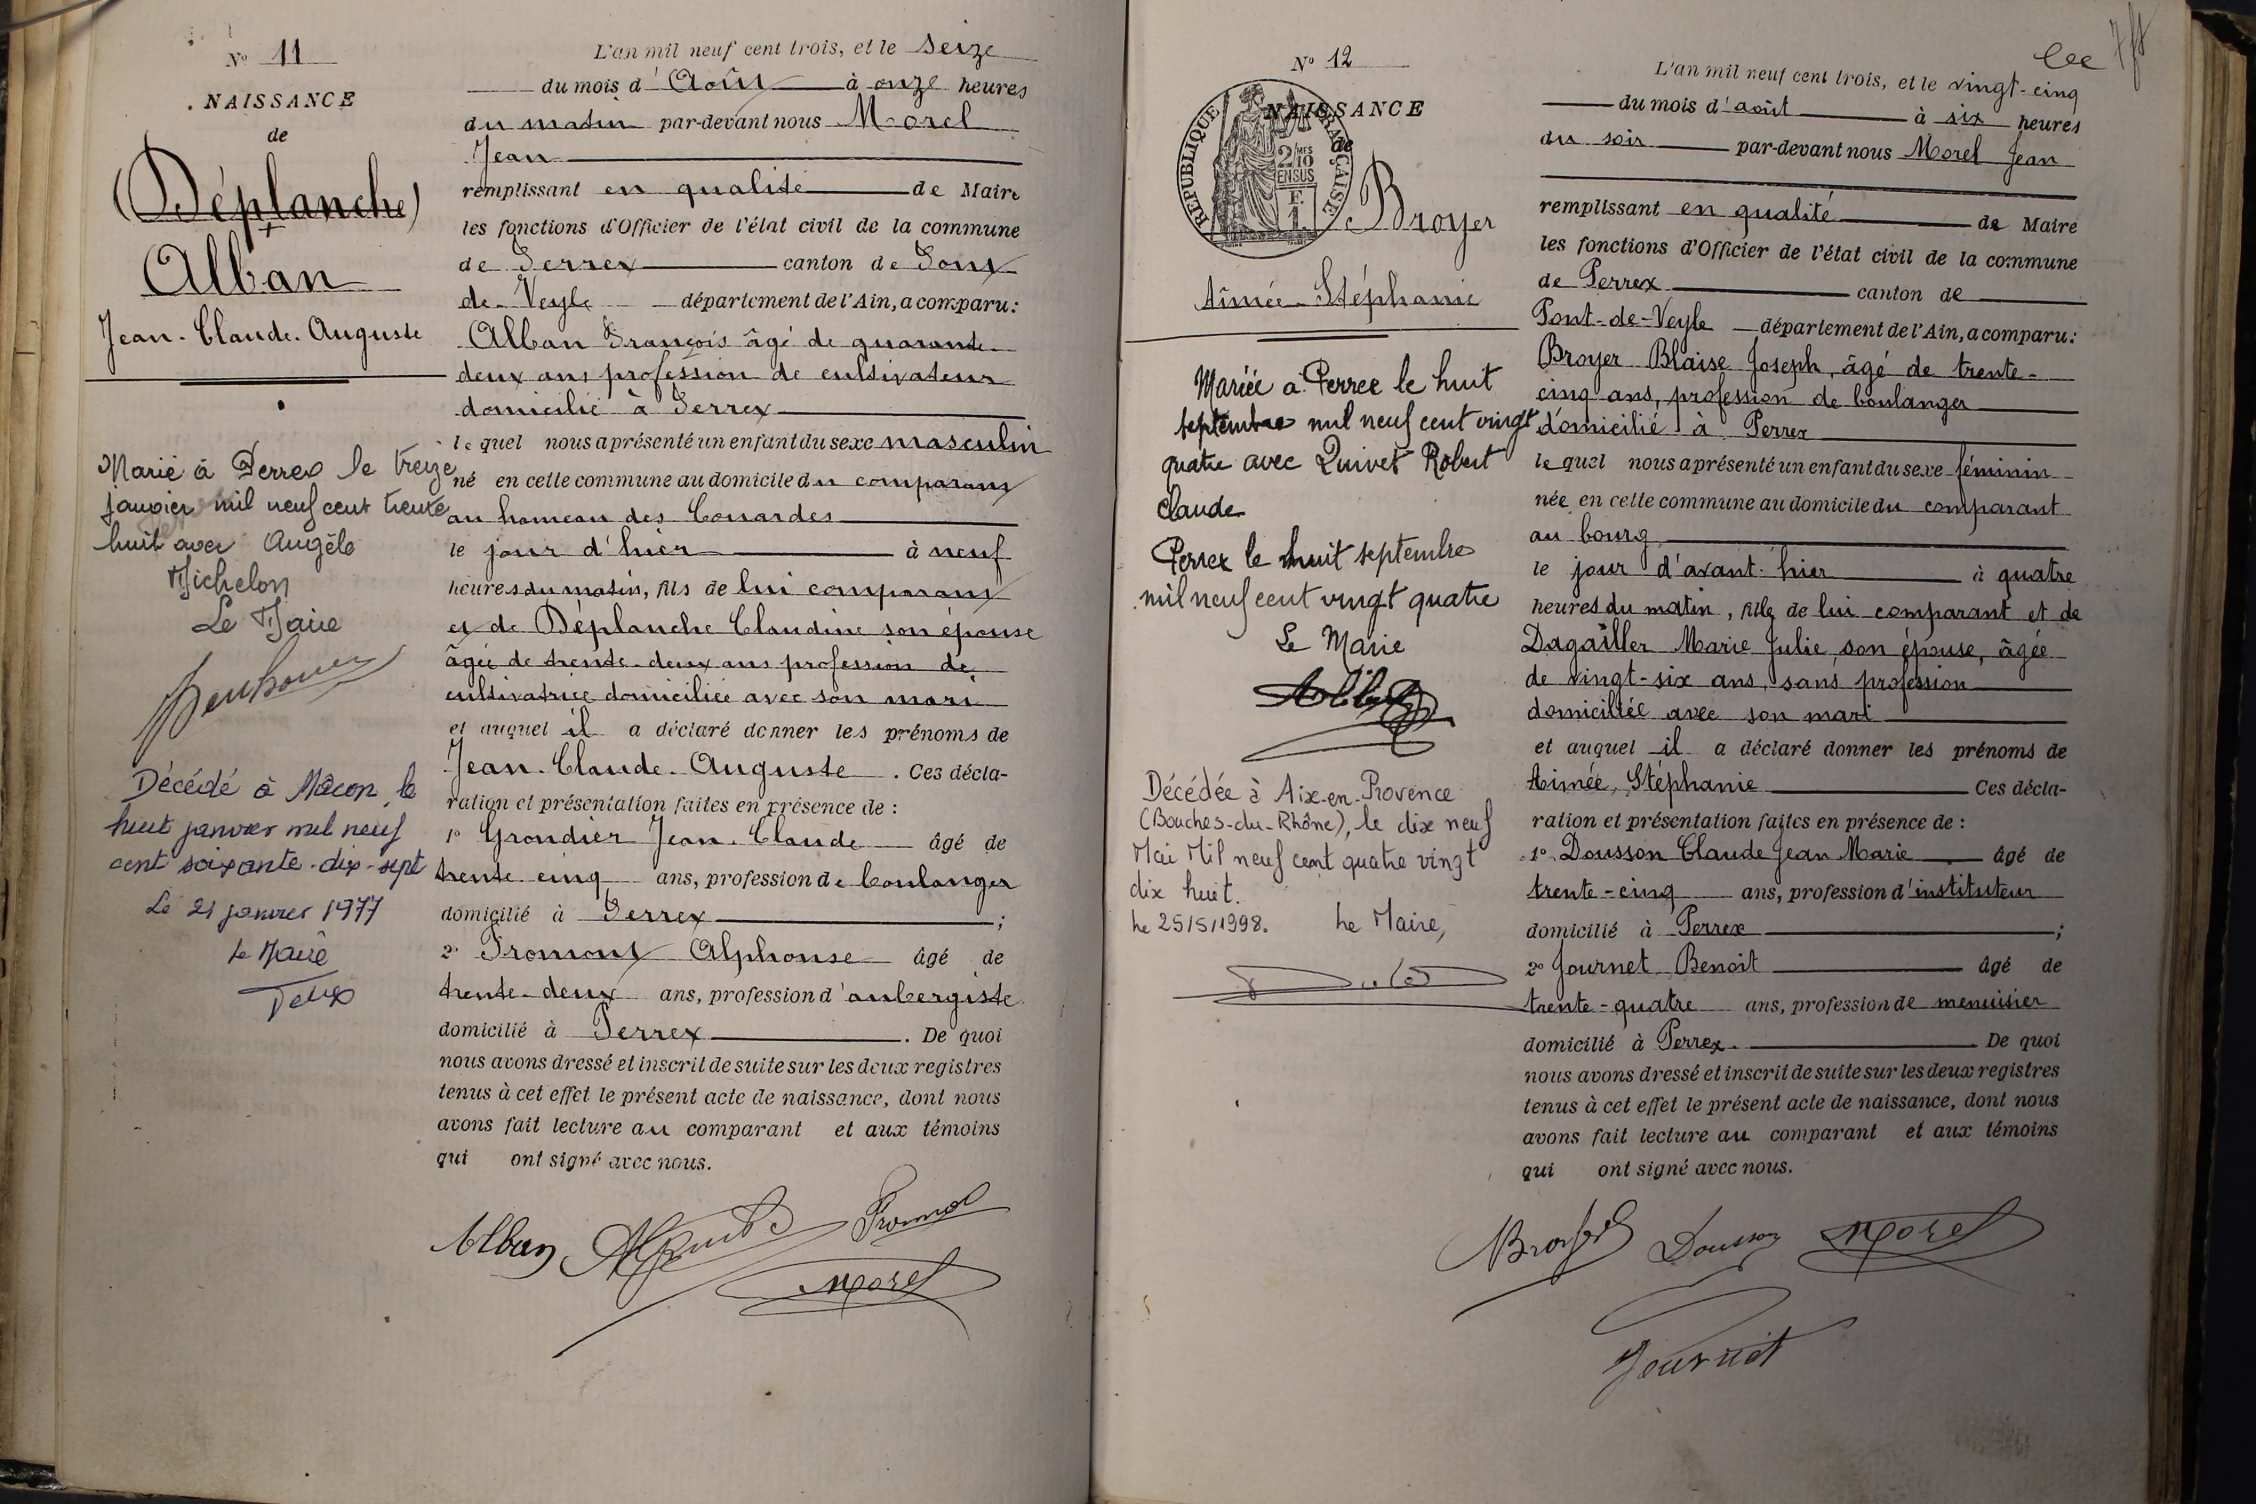 N° 11
NAISSANCE
de
(Déplanche)
Alban
Jean-Claude-Auguste
Marié à Perrex le treize
janvier mil neuf cent trente
huit avec Angèle
Michelon
Le Maire
Décédé à Mâcon, le
huit janvier mil neuf
cent soixante-dix-sept
Le 21 janvier 1977
Le Maire
L'an mil neuf cent trois, et le seize
du mois d'Août à onze heures
du matin par-devant nous Morel
Jean
remplissant en qualité de Maire
les fonctions d'Officier de l'état civil de la commune
de Perrex canton de Pont
de-Veyle département de l'Ain, a comparu:
Alban François âgé de quarante-
deux ans profession de cultivateur
domicilié à Perrex
lequel nous a présenté un enfant du sexe masculin
né en cette commune au domicile du comparant
au hameau des Conardes
le jour d'hier à neuf
heures du matin, fils de lui comparant
et de Déplanche Claudine son épouse
âgée de trente-deux ans profession de
cultivatrice domiciliée avec son mari
et auquel il a déclaré donner les prénoms de
Jean-Claude-Auguste. Ces décla-
ration et présentation faites en présence de :
1° Grondier Jean-Claude âgé de
trente cinq ans, profession de boulanger
domicilié à Perrex ;
2° Promont Alphonse âgé de
trente-deux ans, profession d'aubergiste
domicilié à Perrex. De quoi
nous avons dressé et inscrit de suite sur les deux registres
tenus à cet effet le présent acte de naissance, dont nous
avons fait lecture au comparant et aux témoins
qui ont signé avec nous.
Alban
Morel
N° 12
NAISSANCE
de
REPUBLIQUE FRANÇAISE
2/10 MES
EN SUS
F.
1.
Broyer
Aimée-Stéphanie
Mariée à Perrex le huit
septembre mil neuf cent vingt
quatre avec Quivet Robert
Claude
Perrex le huit septembre
mil neuf cent vingt quatre
Le Marie
Décédée à Aix-en-Provence
(Bouches-du-Rhône), le dix neuf
Mai Mil neuf cent quatre vingt
dix huit.
Le 25/5/1998. Le Maire,
L'an mil neuf cent trois, et le vingt-cinq
du mois d'août à six heures
du soir par-devant nous Morel Jean
remplissant en qualité de Maire
les fonctions d'Officier de l'état civil de la commune
de Perrex canton de
Pont-de-Veyle département de l'Ain, a comparu:
Broyer Blaise Joseph, âgé de trente-
cinq ans, profession de boulanger
domicilié à Perrex
lequel nous a présenté un enfant du sexe féminin
née en cette commune au domicile du comparant
au bourg
le jour d'avant-hier à quatre
heures du matin, fille de lui comparant et de
Dagallier Marie Julie, son épouse, âgée
de vingt-six ans, sans profession
domiciliée avec son mari
et auquel il a déclaré donner les prénoms de
Aimée, Stéphanie Ces décla-
ration et présentation faites en présence de :
1° Dousson Claude Jean Marie âgé de
trente-cinq ans, profession d'instituteur
domicilié à Perrex ;
2° Journet Benoît âgé de
trente-quatre ans, profession de menuisier
domicilié à Perrex. De quoi
nous avons dressé et inscrit de suite sur les deux registres
tenus à cet effet le présent acte de naissance, dont nous
avons fait lecture au comparant et aux témoins
qui ont signé avec nous.
Broyer Dousson Morel
Journet